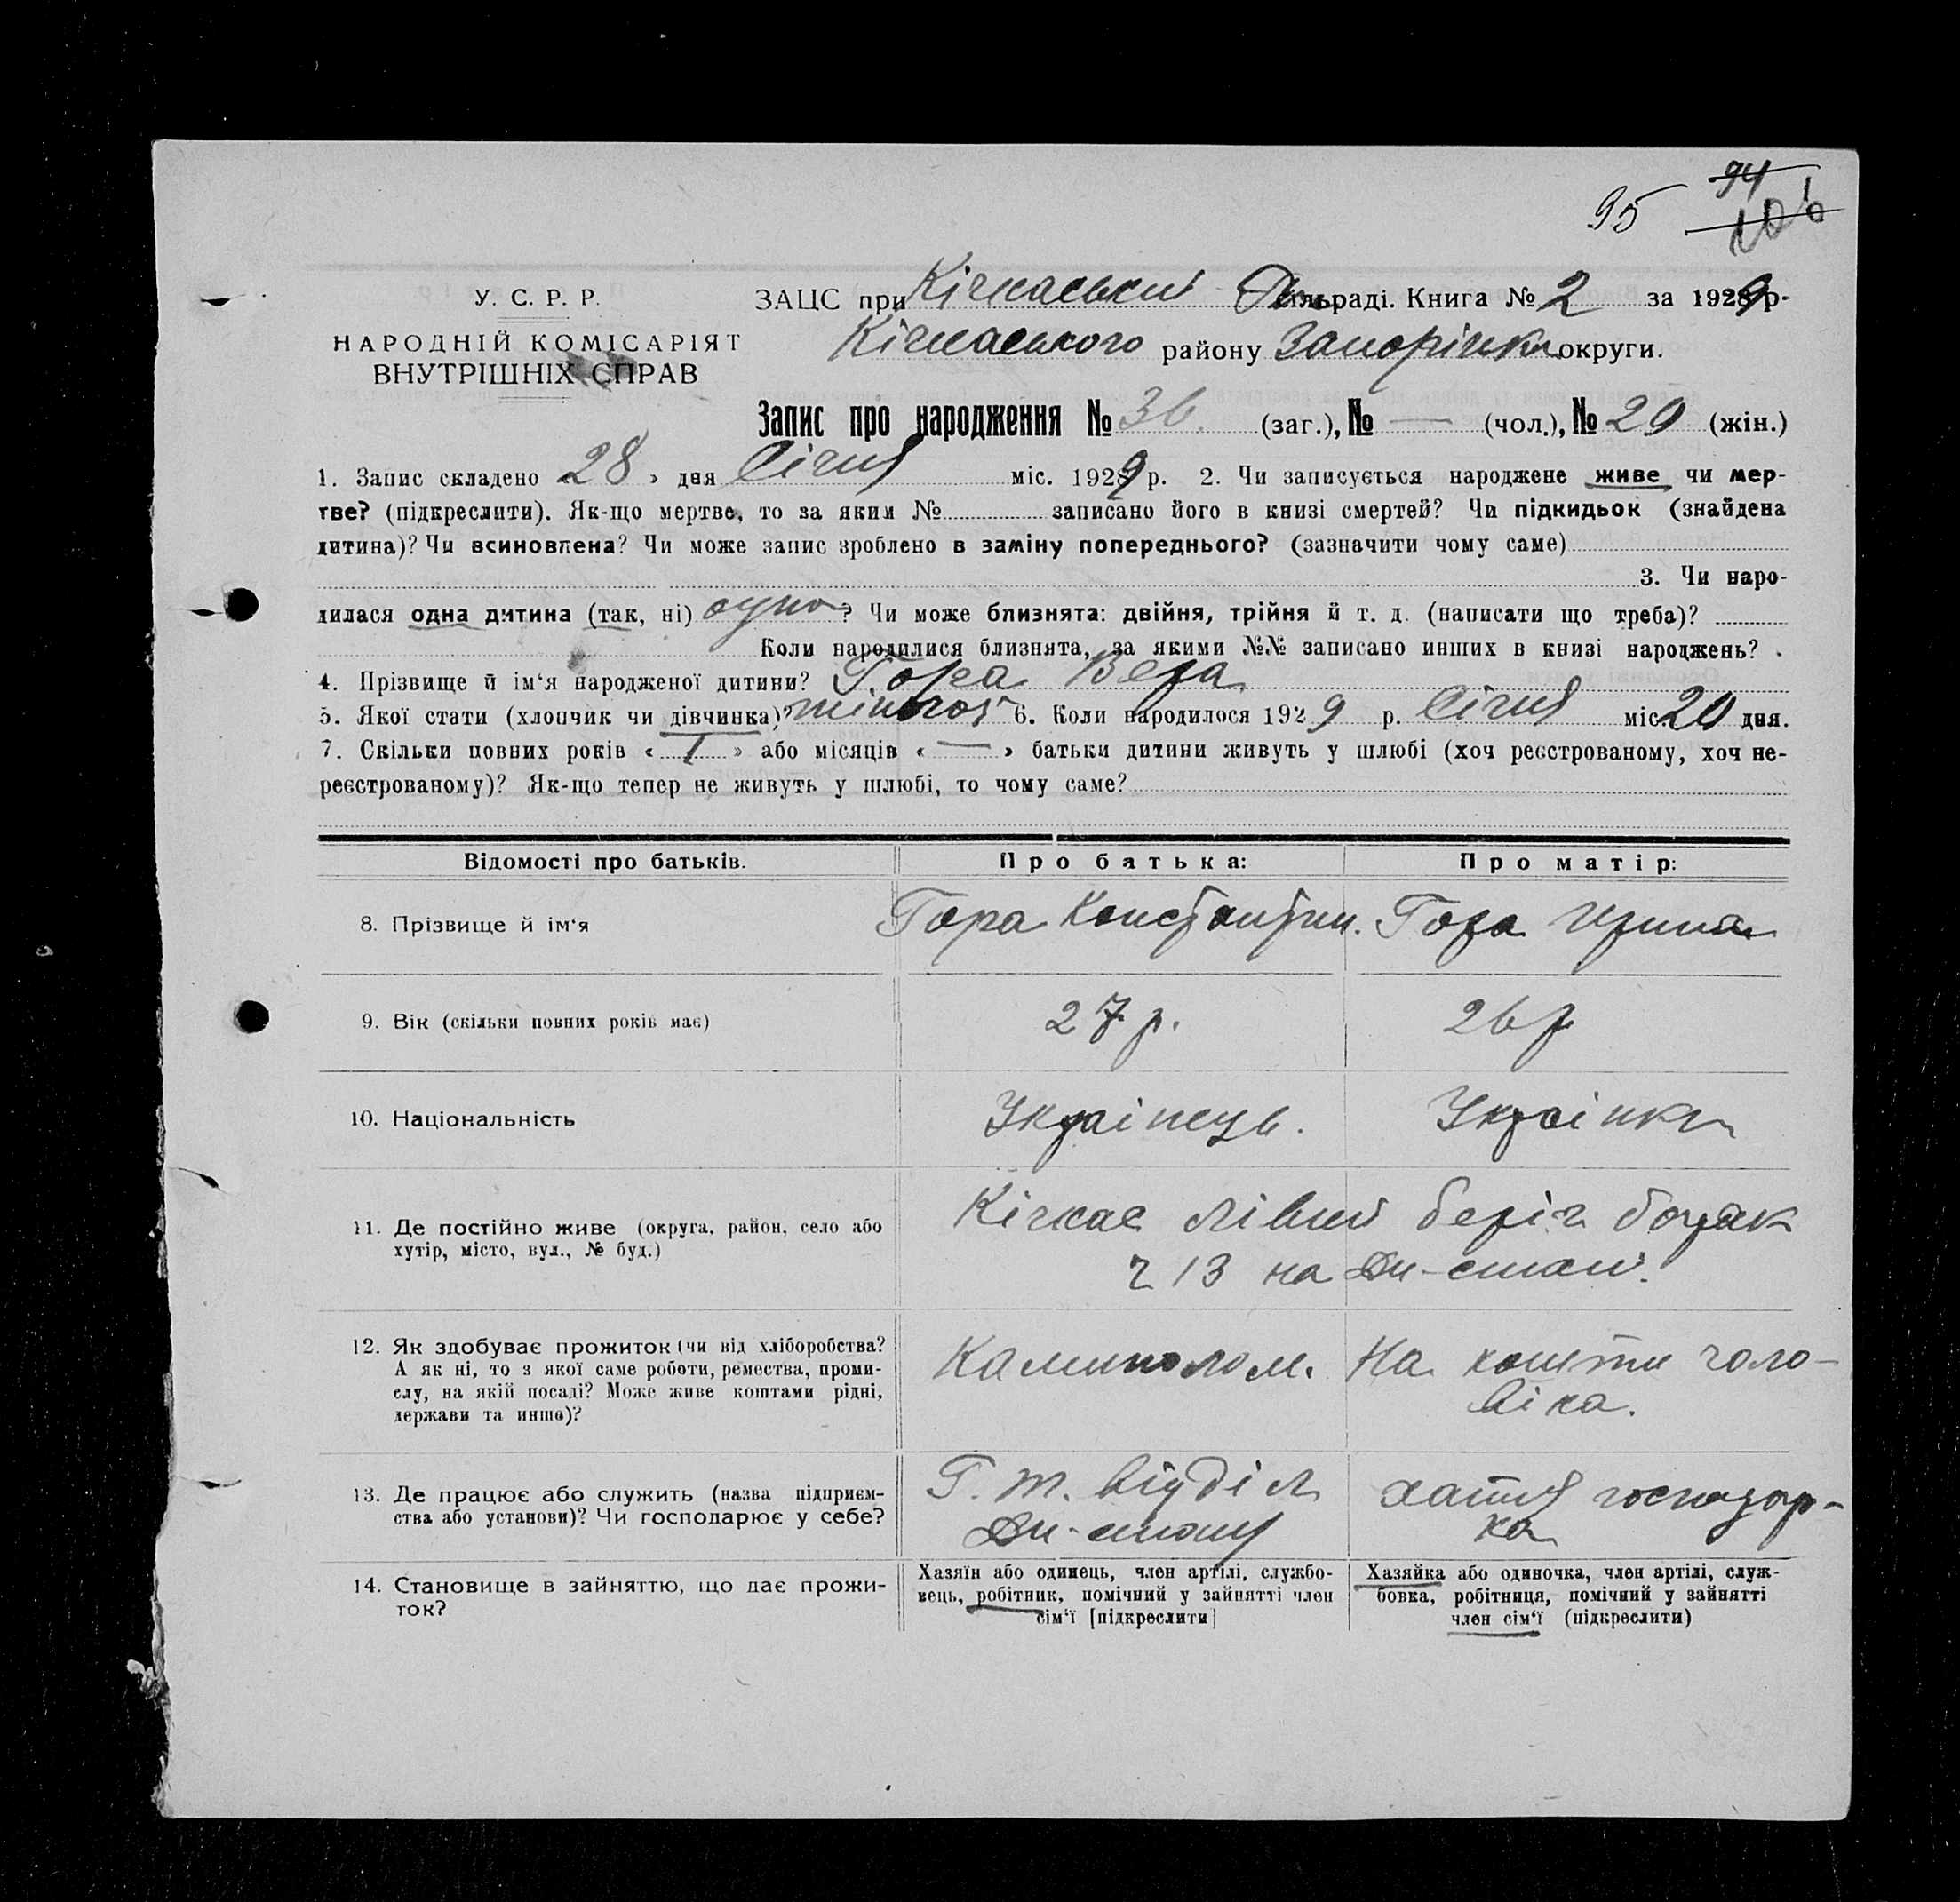 95 94 106
У. С. Р. Р.
НАРОДНІЙ КОМІСАРІЯТ
ВНУТРІШНІХ СПРАВ
ЗАЦС при Кічкаській сільраді. Книга № 2 за 1929 р.
Кічкаського району Запоріжка округи.
Запис про народження № 36. (заг.), № — (чол.), № 20 (жін.)
1. Запис складено 28 › дня Січня міс. 1929 р. 2. Чи записується народжене живе чи мер-
тве? (підкреслити). Як-що мертве, то за яким № записано його в книзі смертей? Чи підкидьок (знайдена
дитина)? Чи всиновлена? Чи може запис зроблено в заміну попереднього? (зазначити чому саме)
3. Чи наро-
дилася одна дитина (так, ні) одно ? Чи може близнята: двійня, трійня й т. д. (написати що треба)?
Коли народилися близнята, за якими №№ записано инших в книзі народжень? .
4. Прізвище й ім‘я народженої дитини? Гора Вера
5. Якої стати (хлопчик чи дівчинка)? жіночої 6. Коли народилося 1929 р. Січня міс. 20 дня.
7. Скільки повних років « 1 » або місяців « — » батьки дитини живуть у шлюбі (хоч реєстрованому, хоч не-
реєстрованому)? Як-що тепер не живуть у шлюбі, то чому саме?
Відомості про батьків. Про батька: Про матір:
8. Прізвище й ім‘я Гора Константин. Гора Ирина
9. Вік (скільки повних років має) 27 р. 26 р
10. Національність Українець. Українка
11. Де постійно живе (округа, район, село або
хутір, місто, вул., № буд.)
Кічкас лівий беріг барак
ч 13 на Дн-стані.
12. Як здобуває прожиток (чи від хліборобства?
А як ні, то з якої саме роботи, ремества, проми-
слу, на якій посаді? Може живе коштами рідні,
держави та инше)?
Каминолом. На кошти чоло-
віка.
13. Де працює або служить (назва підприєм-
ства або установи)? Чи господарює у себе?
Г. т. відділ
Дн-стану
хатня господар-
ка
14. Становище в зайняттю, що дає прожи-
ток?
Хазяїн або одинець, член артілі, службо-
вець, робітник, помічний у зайнятті член
сім‘ї [підкреслити]
Хазяйка або одиночка, член артілі, служ-
бовка, робітниця, помічний у зайнятті
член сім‘ї (підкреслити)